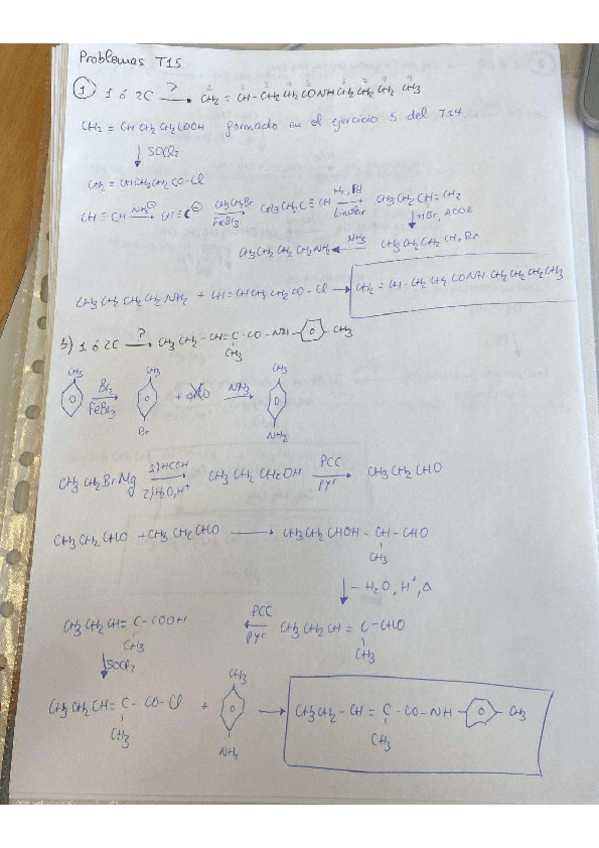 Problemas T15
1 1 ó 2C ?→ CH2 = CH-CH2CH2CONHCH2CH2CH2CH3
CH2 = CHCH2CH2COOH formado en el ejercicio 5 del T14
↓ SOCl2
CH2 = CHCH2CH2CO-Cl
CH ≡ CH NH2⊖→ CH ≡ C⊖ CH3CH2Br→ FeBr3 CH3CH2C ≡ CH H2, Pd→ Lindlar CH3CH2CH=CH2
↓ HBr, ROOR
CH3CH2CH2CH2NH2 ←NH3 CH3CH2CH2CH2Br
CH3CH2CH2CH2NH2 + CH=CHCH2CH2CO-Cl → CH2 = CH-CH2CH2CONH CH2CH2CH2CH3
b) 1 ó 2C ?→ CH3CH2-CH=C-CO-NH- -CH3
CH3
CH3 CH3 CH3
Br2→ FeBr3 + NH3→
Br NH2
CH3CH2BrMg 1) HCOH 2) H2O, H+→ CH3CH2CH2OH PCC→ pyr CH3CH2CHO
CH3CH2CHO + CH3CH2CHO → CH3CH2CHOH-CH-CHO
CH3
↓ -H2O, H+, Δ
CH3CH2CH=C-COOH ←PCC pyr CH3CH2CH=C-CHO
CH3 CH3
↓ SOCl2
CH3
CH3CH2CH=C-CO-Cl + → CH3CH2-CH=C-CO-NH- -CH3
CH3 NH2 CH3